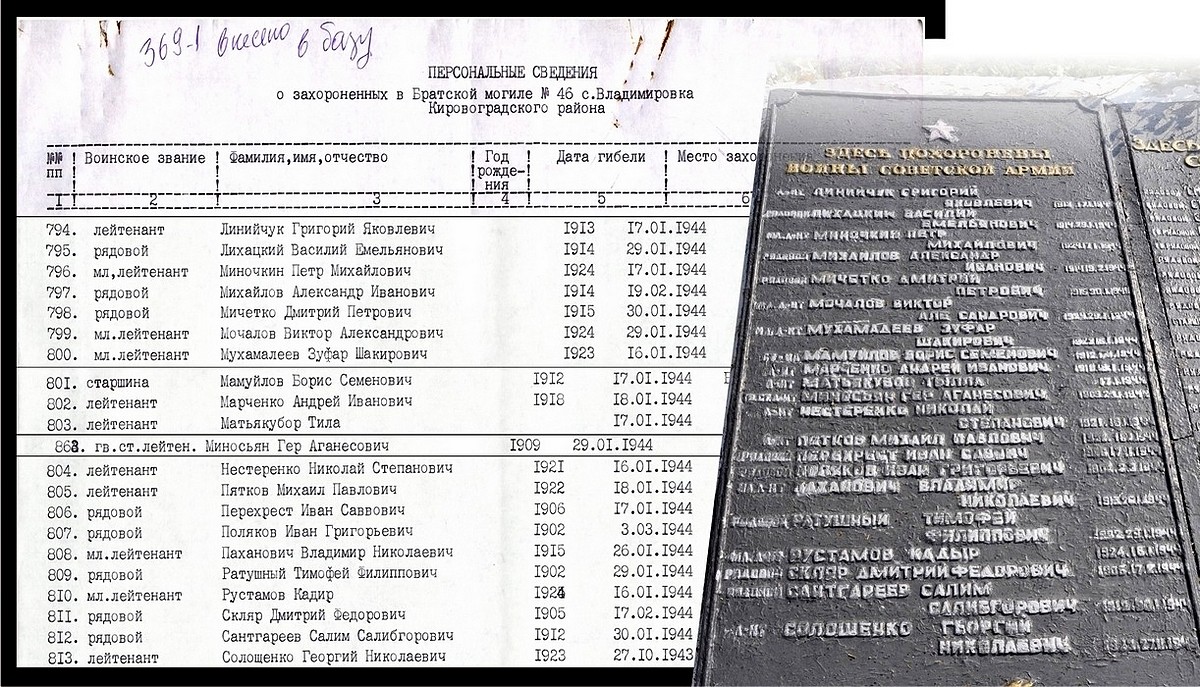 369-1 внесено в базу
ПЕРСОНАЛЬНЫЕ СВЕДЕНИЯ
о захороненных в Братской могиле № 46 с.Владимировка
Кировоградского района
№№ пп ! Воинское звание ! Фамилия,имя,отчество ! Год рожде-ния ! Дата гибели ! Место захо
I ! 2 ! 3 ! 4 ! 5 ! 6
794. лейтенант Линийчук Григорий Яковлевич I9I3 I7.0I.I944
795. рядовой Лихацкий Василий Емельянович I9I4 29.0I.I944
796. мл,лейтенант Миночкин Петр Михайлович I924 I7.0I.I944
797. рядовой Михайлов Александр Иванович I9I4 I9.02.I944
798. рядовой Мичетко Дмитрий Петрович I9I5 30.0I.I944
799. мл.лейтенант Мочалов Виктор Александрович I924 29.0I.I944
800. мл.лейтенант Мухамалеев Зуфар Шакирович I923 I6.0I.I944
80I. старшина Мамуйлов Борис Семенович I9I2 I7.0I.I944
802. лейтенант Марченко Андрей Иванович I9I8 I8.0I.I944
803. лейтенант Матьякубор Тила I7.0I.I944
863. гв.ст.лейтен. Миносьян Гер Аганесович I909 29.0I.I944
804. лейтенант Нестеренко Николай Степанович I92I I6.0I.I944
805. лейтенант Пятков Михаил Павлович I922 I8.0I.I944
806. рядовой Перехрест Иван Саввович I906 I7.0I.I944
807. рядовой Поляков Иван Григорьевич I902 3.03.I944
808. мл.лейтенант Паханович Владимир Николаевич I9I5 26.0I.I944
809. рядовой Ратушный Тимофей Филиппович I902 29.0I.I944
8I0. мл.лейтенант Рустамов Кадир I924 I6.0I.I944
8II. рядовой Скляр Дмитрий Федорович I905 I7.02.I944
8I2. рядовой Сантгареев Салим Салибгорович I9I2 30.0I.I944
8I3. лейтенант Солощенко Георгий Николаевич I923 27.I0.I943
ЗДЕСЬ ПОХОРОНЕНЫ
ВОИНЫ СОВЕТСКОЙ АРМИИ
ЛИНИЙЧУК ГРИГОРИЙ
ЯКОВЛЕВИЧ
ЛИХАЦКИЙ ВАСИЛИЙ
ЕМЕЛЬЯНОВИЧ
МИНОЧКИН ПЕТР
МИХАЙЛОВИЧ
МИХАЙЛОВ АЛЕКСАНДР
ИВАНОВИЧ
МИЧЕТКО ДМИТРИЙ
ПЕТРОВИЧ
МОЧАЛОВ ВИКТОР
АЛЕ САНДРОВИЧ
МУХАМАДЕЕВ ЗУФАР
ШАКИРОВИЧ
МАМУЙЛОВ БОРИС СЕМЕНОВИЧ
МАРЧЕНКО АНДРЕЙ ИВАНОВИЧ
МАТЬЯКУБОВ
МИНОСЬЯН ГЕР АГАНЕСОВИЧ
НЕСТЕРЕНКО НИКОЛАЙ
СТЕПАНОВИЧ
ПЯТКОВ МИХАИЛ ПАВЛОВИЧ
ПЕРЕХРЕСТ ИВАН
ПОЛЯКОВ ИВАН ГРИГОРЬЕВИЧ
ПАХАНОВИЧ ВЛАДИМИР
НИКОЛАЕВИЧ
РАТУШНЫЙ ТИМОФЕЙ
ФИЛИППОВИЧ
РУСТАМОВ КАДЫР
СКЛЯР ДМИТРИЙ ФЕДОРОВИЧ
САНТГАРЕЕВ САЛИМ
САЛИБГОРОВИЧ
СОЛОШЕНКО ГЕОРГИЙ
НИКОЛАЕВИЧ